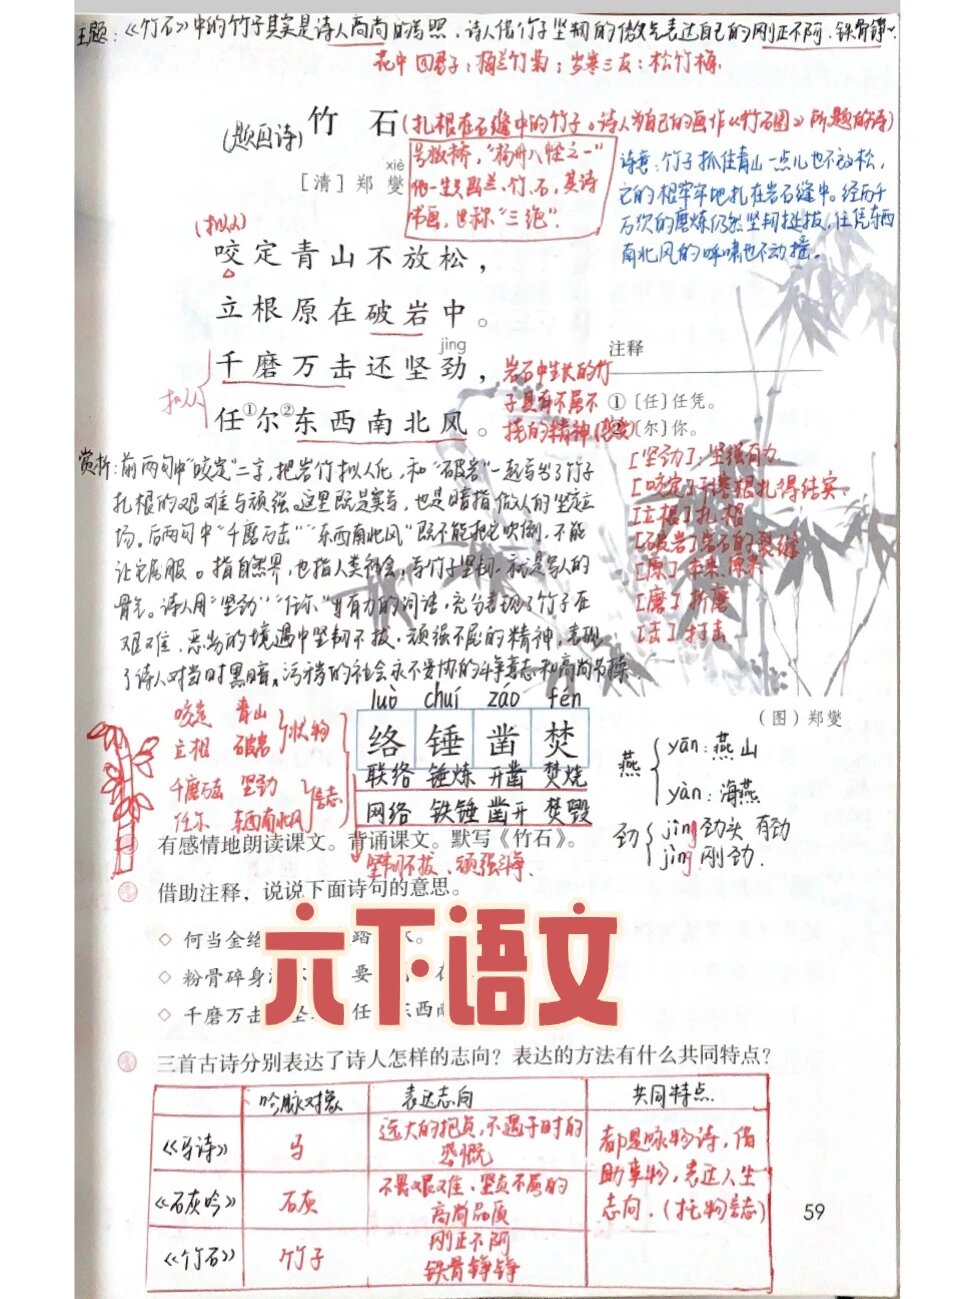 主题：《竹石》中的竹子其实是诗人高尚的写照，诗人借竹子坚韧的傲气表达自己的刚正不阿、铁骨铮
花中四君子：梅兰竹菊；岁寒三友：松竹梅
(题画诗)
竹 石
(扎根在石缝中的竹子。诗人为自己的画作《竹石图》所题的诗)
xiè
[清]郑 燮
号板桥，“扬州八怪之一”
他一生只画兰、竹、石，其诗
书画，世称“三绝”.
诗意：竹子抓住青山一点儿也不放松，
它的根牢牢地扎在岩石缝中。经历千
万次的磨炼仍然坚韧挺拔，任凭东西
南北风的呼啸也不动摇。
(拟人)
咬定青山不放松，
立根原在破岩中。
jìng
千磨万击还坚劲，
任①尔②东西南北风。
拟人
岩石中生长的竹
子具有不屈不
挠的精神
注释
①〔任〕任凭。
②〔尔〕你。
[坚劲]：坚强有力
[立根]扎根
[破岩]岩石的裂缝
[原]本来、原来
[磨]折磨
[击]打击
赏析：前两句中“咬定”二字，把岩竹拟人化，和“破岩”一起写出了竹子
扎根的艰难与顽强。这里既是实写，也是暗指做人的坚定立
场。后两句中“千磨万击”“东西南北风”既不能把它吹倒，不能
让它屈服。指自然界，也指人类社会，写竹子坚韧，就是写人的
骨气。诗人用“坚劲”“任尔”等有力的词语，充分表现了竹子在
艰难、恶劣的境遇中坚韧不拔、顽强不屈的精神，表现
了诗人对当时黑暗、污糟的社会永不妥协的斗争意志和高尚节操
(图)郑燮
咬定 青山
立根 破岩
状物
千磨万击 坚劲
任尔 东西南北风
言志
坚韧不拔、顽强斗争
luò chuí záo fén
络 锤 凿 焚
联络 锤炼 开凿 焚烧
网络 铁锤 凿开 焚毁
燕
yān：燕山
yàn：海燕
劲
jìng 劲头 有劲
jìng 刚劲.
有感情地朗读课文。背诵课文。默写《竹石》。
借助注释，说说下面诗句的意思。
◇ 何当金络 踏
◇ 粉骨碎身 要
◇ 千磨万击 坚 任 东西南
六下语文
三首古诗分别表达了诗人怎样的志向？表达的方法有什么共同特点？
吟咏对象 表达志向 共同特点.
《马诗》 马 远大的抱负，不遇于时的
感慨
《石灰吟》 石灰 不畏艰难，坚贞不屈的
高尚品质
《竹石》 竹子 刚正不阿
铁骨铮铮
都是咏物诗，借
助事物，表达人生
志向.(托物言志)
59